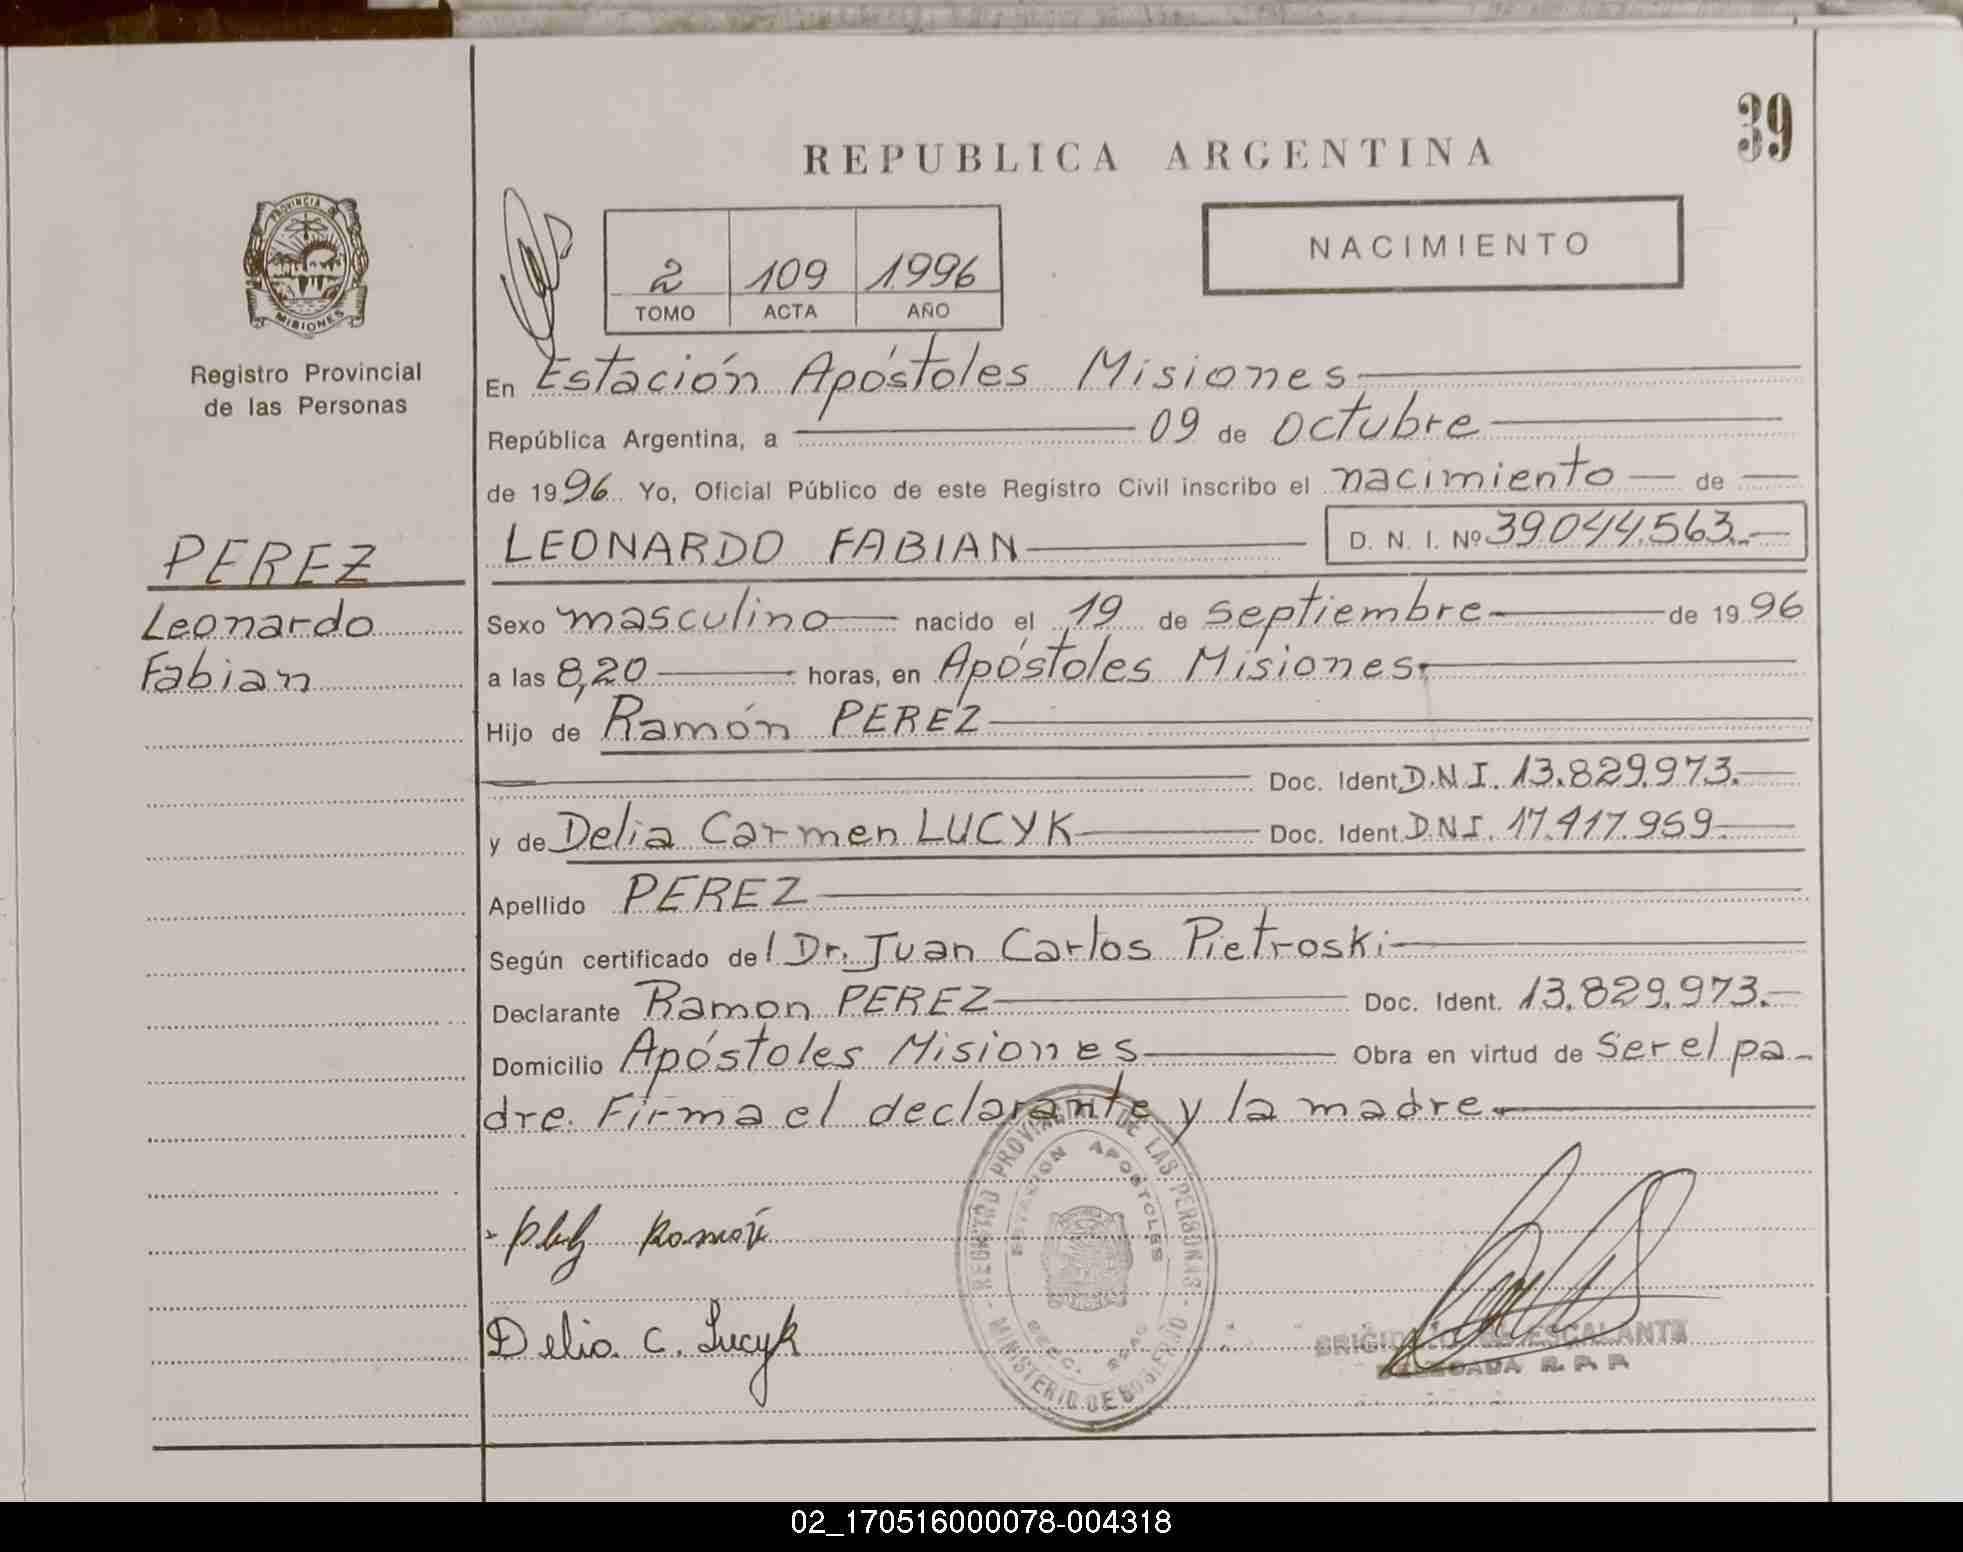 39
REPUBLICA ARGENTINA
PROVINCIA DE
MISIONES
Registro Provincial
de las Personas
NACIMIENTO
2 109 1996
TOMO ACTA AÑO
En Estación Apóstoles Misiones
República Argentina, a 09 de Octubre
de 1996 Yo, Oficial Público de este Registro Civil inscribo el nacimiento de
PEREZ
Leonardo
Fabian
LEONARDO FABIAN D. N. I. Nº 39.044.563.-
Sexo masculino nacido el 19 de Septiembre de 1996
a las 8,20 horas, en Apóstoles Misiones
Hijo de Ramón PEREZ
Doc. Ident. D.N.I. 13.829.973.
y de Delia Carmen LUCYK Doc. Ident. D.N.I. 17.417.959
Apellido PEREZ
Según certificado del Dr. Juan Carlos Pietroski
Declarante Ramon PEREZ Doc. Ident. 13.829.973.
Domicilio Apóstoles Misiones Obra en virtud de Ser el pa-
dre. Firma el declarante y la madre.
REGISTRO PROVINCIAL DE LAS PERSONAS
ESTACION APOSTOLES
MINISTERIO DE GOBIERNO
Ramón
Delia C. Lucyk
DE ESCALANTE
DELEGADA R. P. P.
02_170516000078-004318